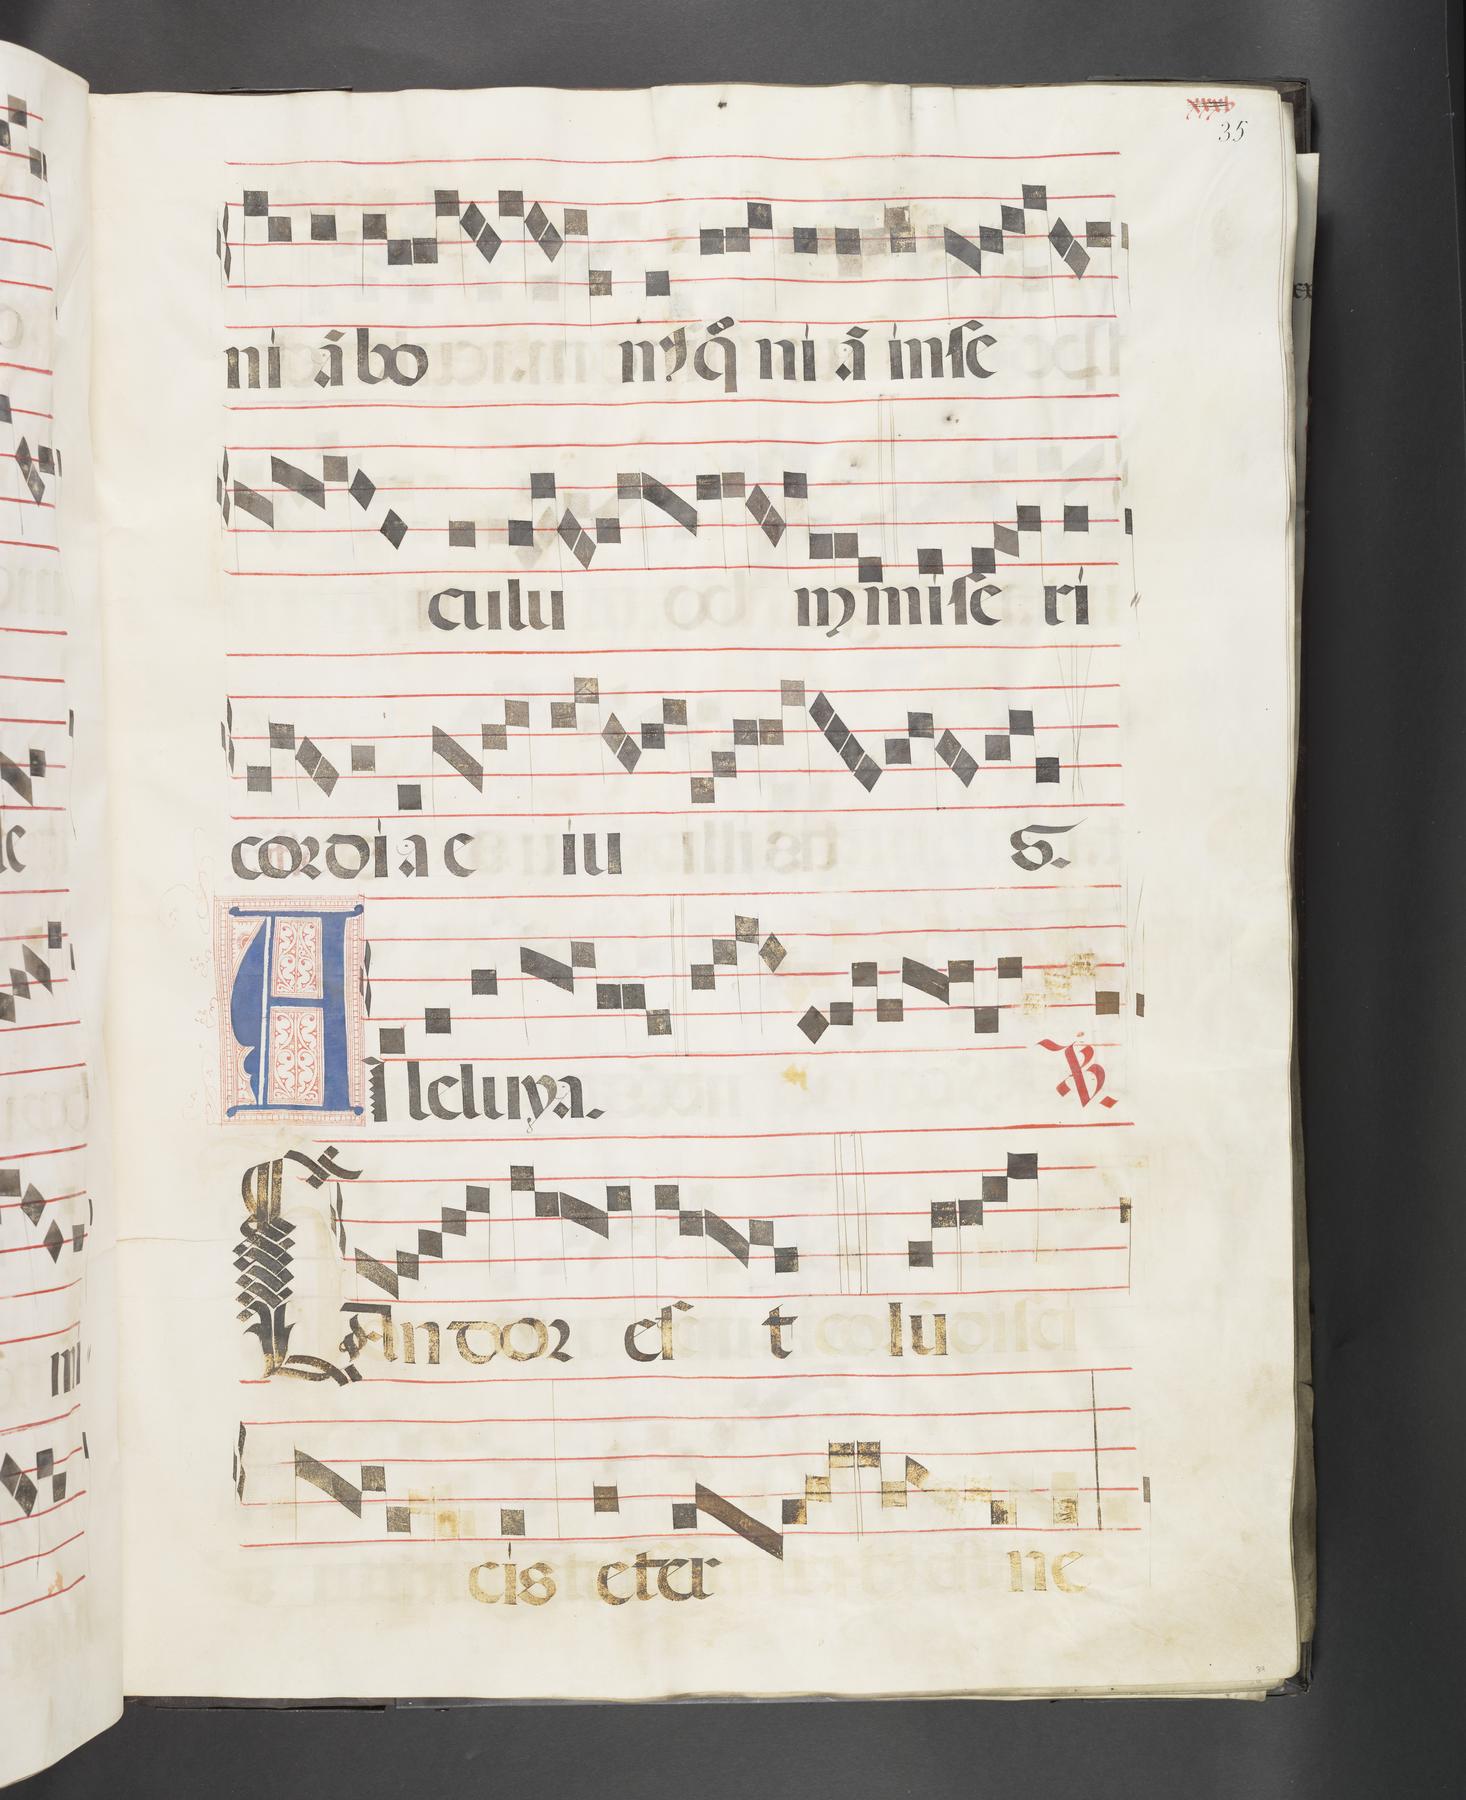 xxxv
35
ni ā bo nꝰ q̄ ni ā in se
culu m misē ri
cordia e iu s.
Alleluya. ℣.
CAndor est lu
cis eter ne